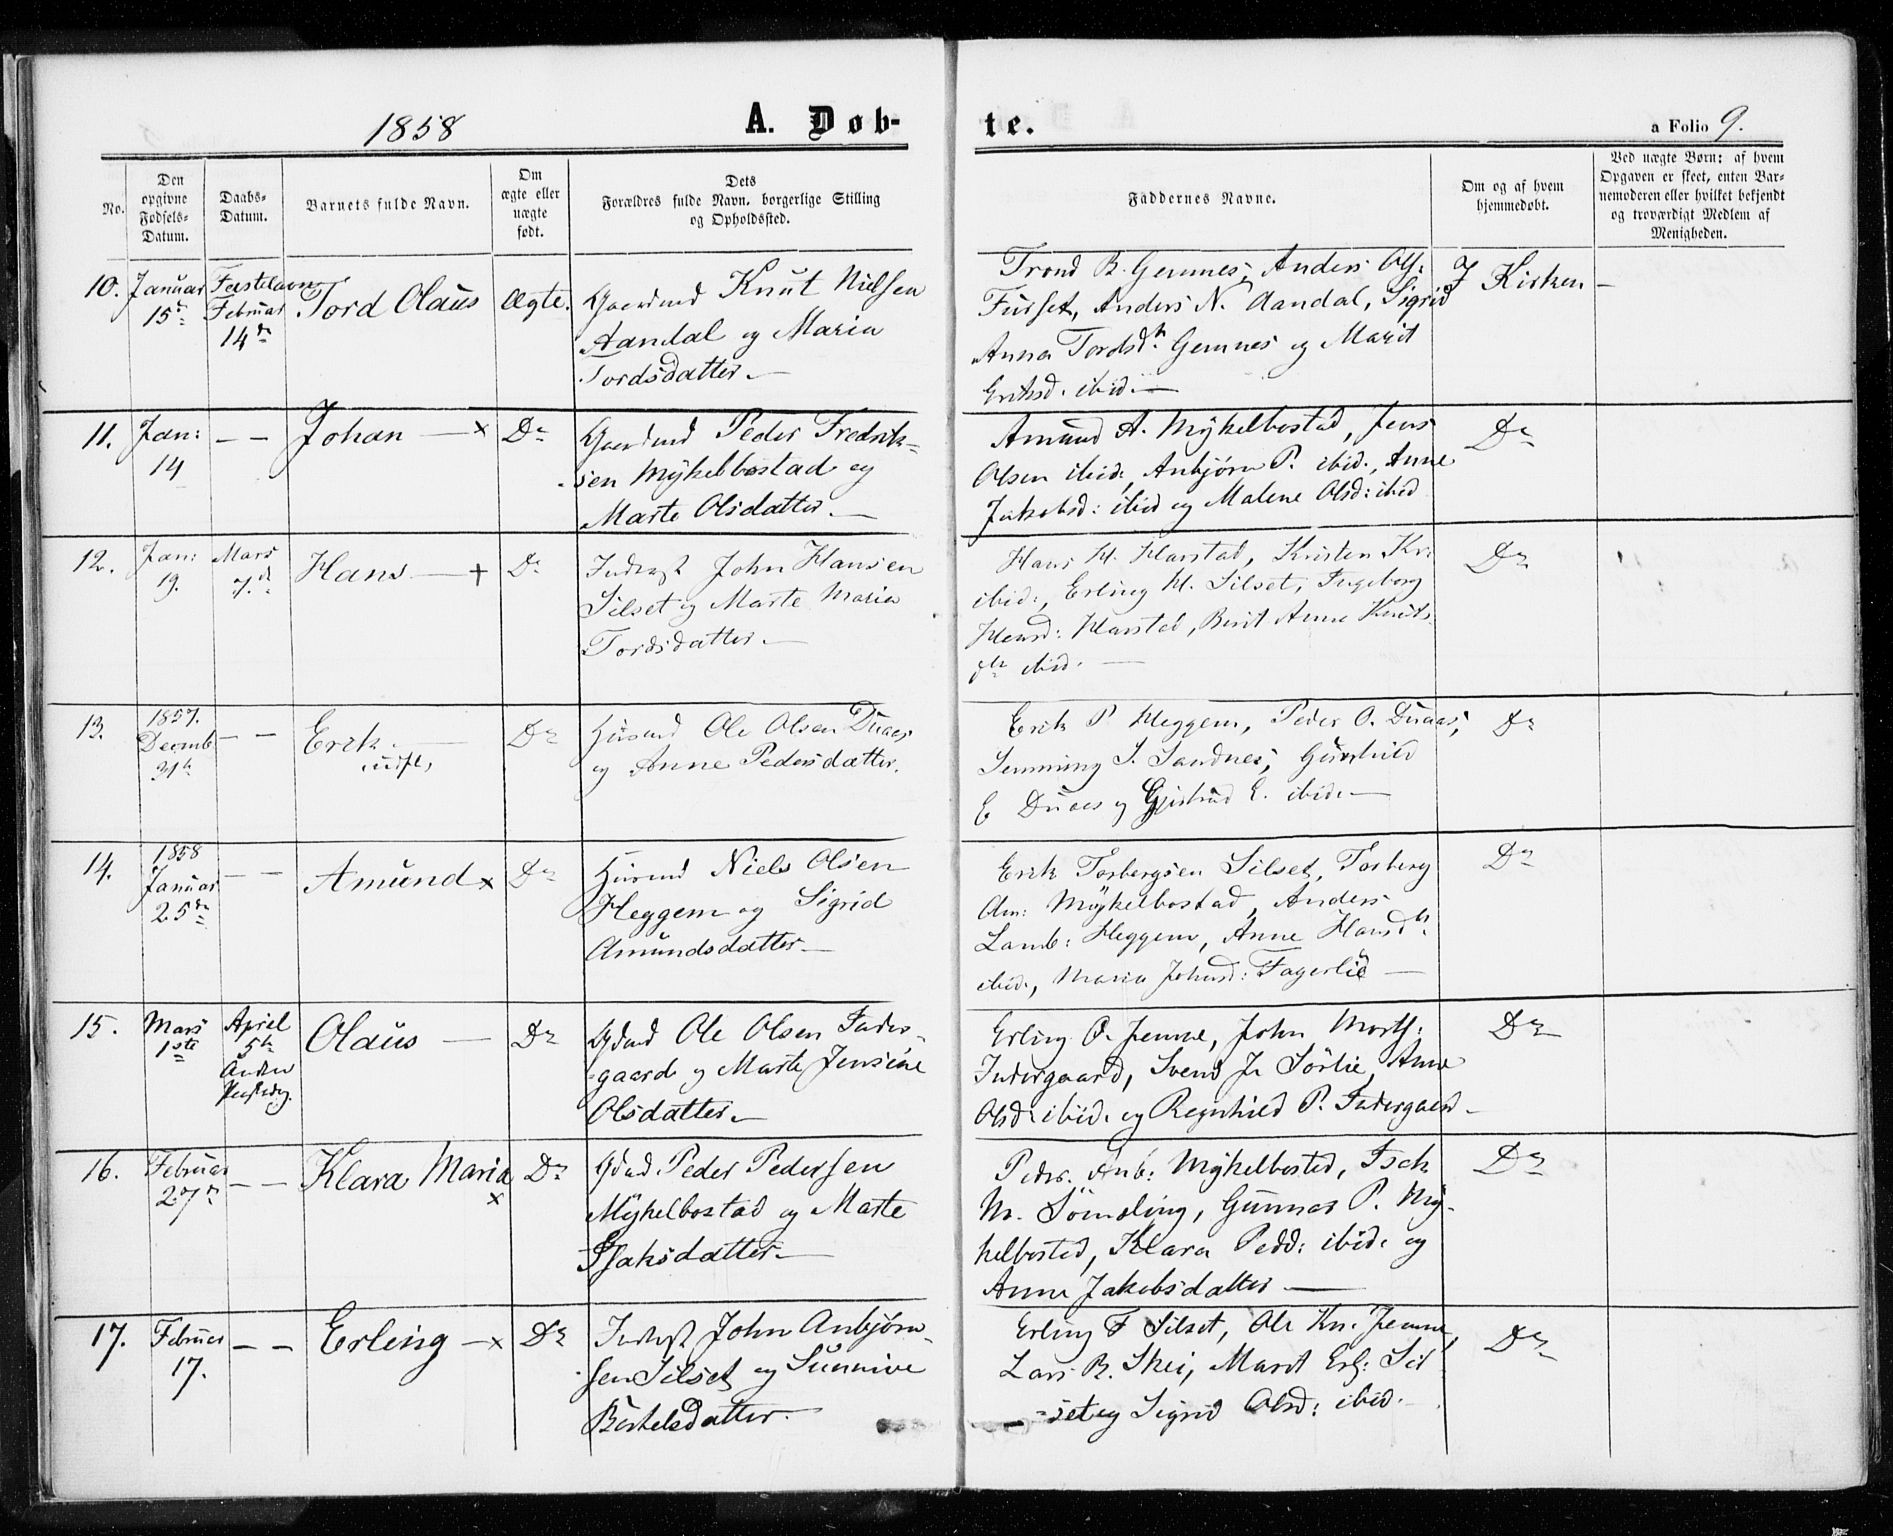 1858 A. Døb- te. a Folio 9.
No.
Den
opgivne
Fødsels-
Datum.
Daabs-
Datum.
Barnets fulde Navn.
Om
ægte eller
uægte
født.
Dets
Forældres fulde Navn, borgerlige Stilling
og Opholdssted.
Faddernes Navne.
Om og af hvem
hjemmedøbt.
Ved uægte Børn: af hvem
Opgaven er skeet, enten Bar-
nemoderen eller hvilket bekjendt
og troværdigt Medlem af
Menigheden.
10.
Januar
15de
Fastelavn
Februar
14de
Tord Olaus
Ægte.
Gaardmd Knut Nielsen
Aandal og Maria
Tordsdatter.—
Trond R. Gemnes, Anders Ols:
Furset, Anders N. Aandal, Sigrid
Anna Tordsdtr Gemnes og Marit
Eriksd. ibid.—
I Kirken —
11.
Jan:
14
— —
Johan — x
Do
Gaardmd Peder Fredrik-
sen Mÿkelbostad og
Marte Olsdatter.—
Amund A. Mÿkelbostad, Jens
Olsen ibid, Anbjörn P. ibid., Anne
Jakobsd: ibid og Malene Olsd: ibid
Do
12.
Jan:
19.
Mars
7d.
Hans — +
Do
Inderst John Hansen
Silset og Marte Maria
Tordsdatter.—
Hans H. Harstad, Kristen Kr:
ibid:, Erling H. Silset, Ingeborg
Hansd: Harstad, Berit Anne Knuts
dtr ibid. —
Do
13.
1857.
Decemb
31te
— —
Erik —
Do
Husmd Ole Olsen Duaas
og Anne Pedersdatter.
Erik P. Heggem, Peder O. Duaas,
Semming J. Sandnes, Gunhild
E Duaas og Gjertrud E. ibid.—
Do
14.
1858
Januar
25de
— —
Amund x
Do
Husmd Niels Olsen
Heggem og Sigrid
Amundsdatter—
Erik Torbergsen Silset, Torberg
Am: Mÿkelbostad, Anders
Lamb: Heggem, Anne Hansdtr
ibid., Maria Johnsd: Fagerlie —
Do
15.
Mars
1ste
April
5te
Anden
Paaskedag.
Olaus —
Do
Gdmd Ole Olsen Inder-
gaard og Marte Jensine
Olsdatter.—
Erling O. Jemne, John Morts:
Indergaard, Svend J. Sörlie, Anne
Olsd: ibid. og Ragnhild P. Indergaard —
Do
16.
Februar
27de
— —
Klara Maria
x
Do
Gdmd Peder Pedersen
Mÿkelbostad og Marte
Isaksdatter.—
Peder Anb: Mÿkelbostad, Isak
M. Sömsling, Gunnar P. Mÿ-
kelbostad, Klara Pedd: ibid. og
Anne Jakobsdatter —
Do
17.
Februar
17.
— —
Erling — x
Do
Inderst John Anbjørn-
sen Silset og Sunnive
Bertelsdatter.
Erling F Silset, Ole Kn. Jemne,
Lars R. Skei, Marit Erl: Sil
-set og Sigrid Olsd: ibid.
Do